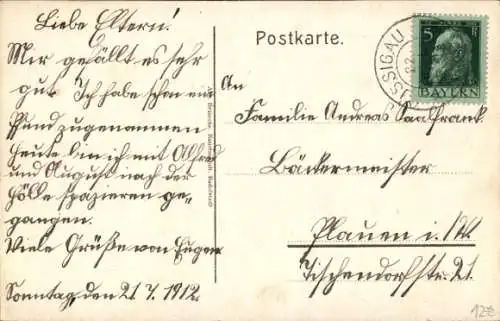 Liebe Eltern!
Mir gefällt es sehr
gut. Ich habe schon ein
Pfund zugenommen
Heute bin ich mit Alfred
und August nach der
Hölle spazieren ge-
gangen.
Viele Grüße von Eugen
Sonntag, den 21. 7. 1912.
Postkarte.
An
Familie Andreas Saalfrank
Bäckermeister
Plauen i. V.
Tischendorfstr. 21.
SSIGAU
5
BAYERN